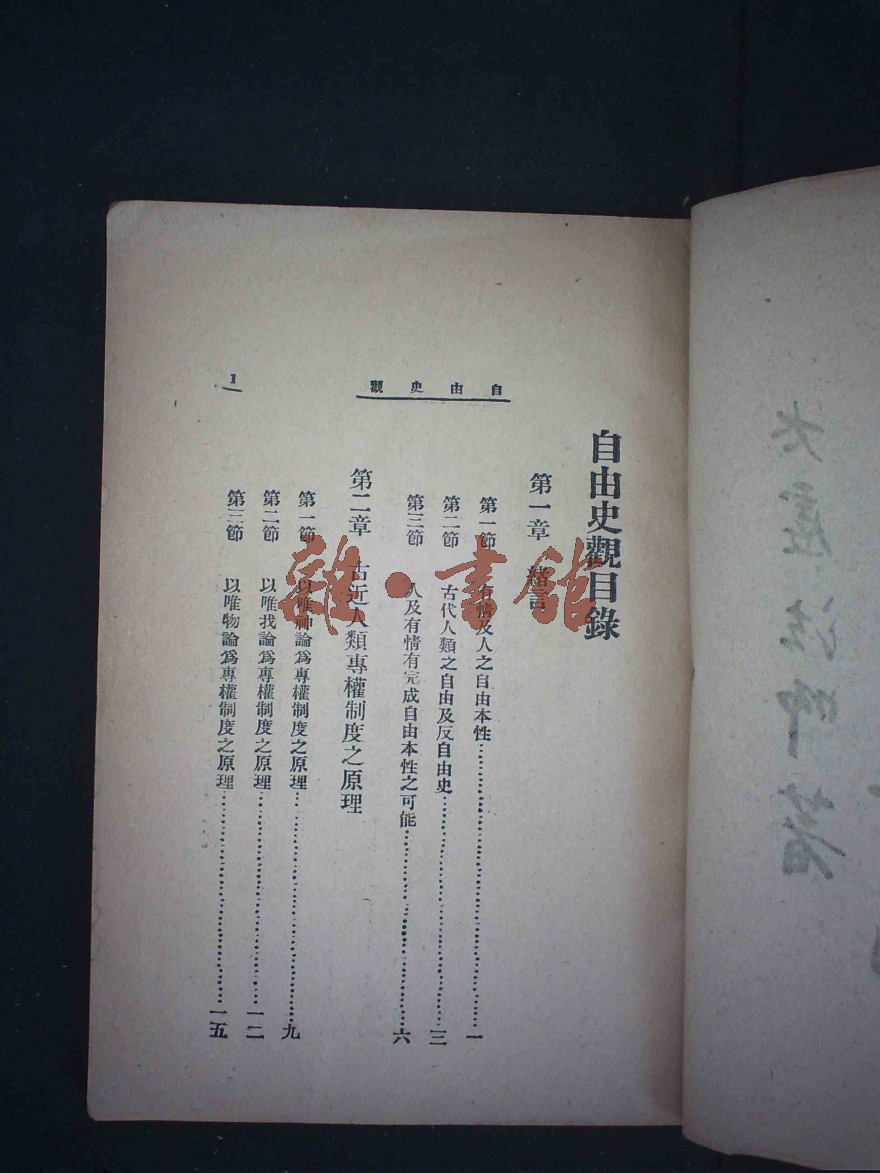 太虛法師著
自由史觀
1
自由史觀目錄
第一章 緒言
第一節 有情及人之自由本性⋯⋯⋯⋯一
第二節 古代人類之自由及反自由史⋯⋯⋯⋯三
第三節 人及有情有完成自由本性之可能⋯⋯⋯⋯六
第二章 古近人類專權制度之原理
第一節 以唯神論爲專權制度之原理⋯⋯⋯⋯九
第二節 以唯我論爲專權制度之原理⋯⋯⋯⋯一二
第三節 以唯物論爲專權制度之原理⋯⋯⋯⋯一五
雜·書館